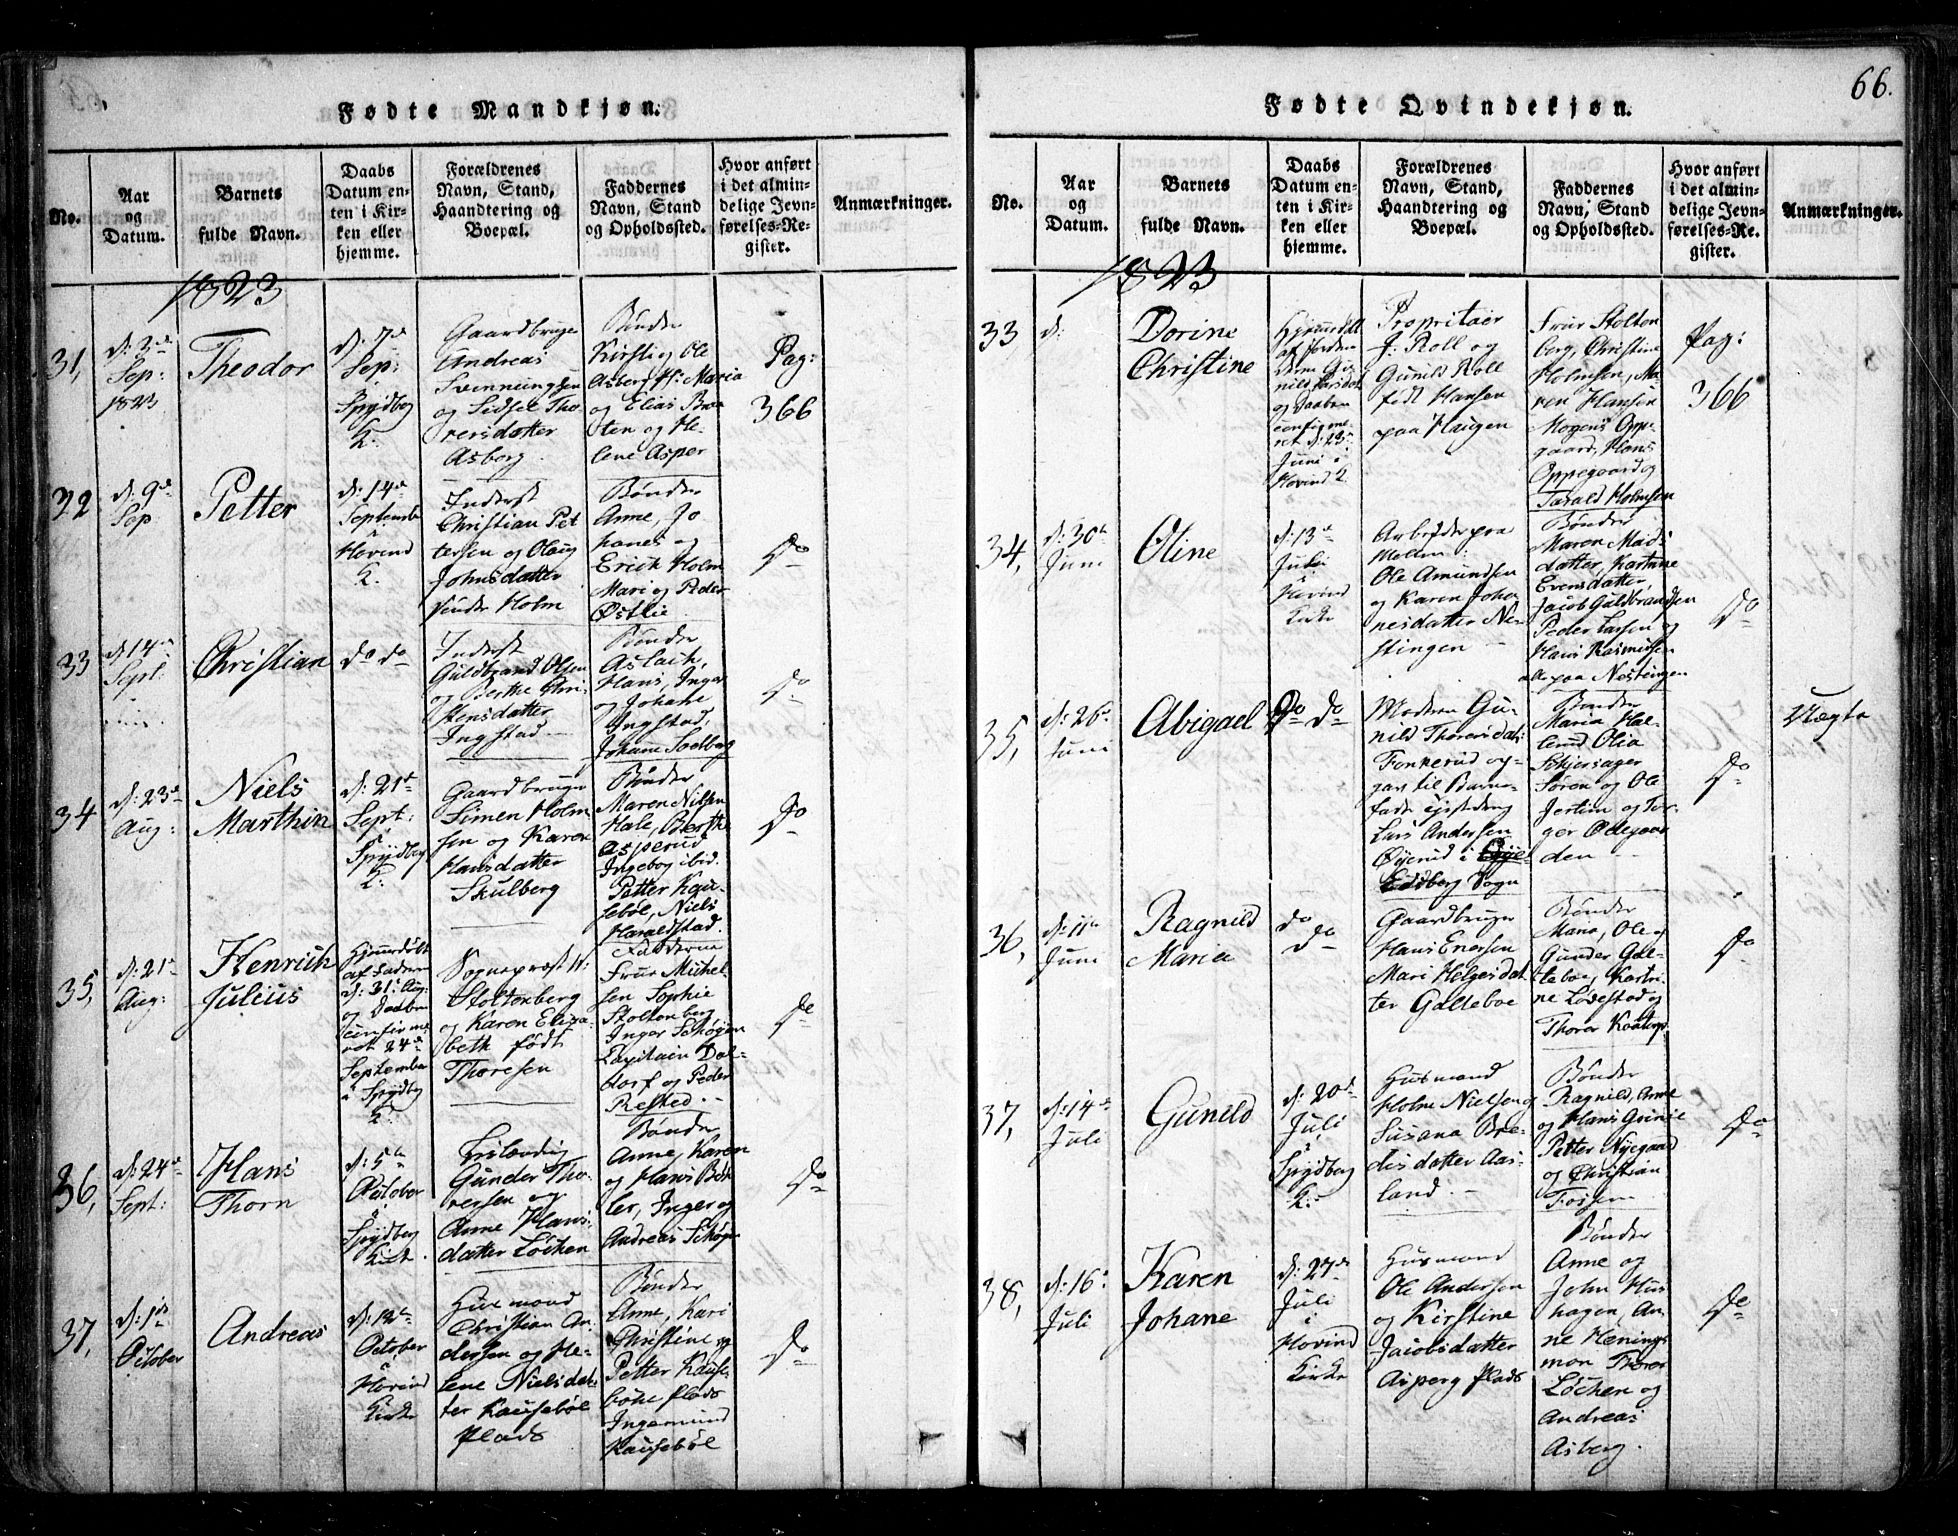 66.
Fødte Mandkjøn.
No.
Aar
og
Datum.
Barnets
fulde Navn.
Daabs
Datum en-
ten i Kir-
ken eller
hjemme.
Forældrenes
Navn, Stand,
Haandtering og
Boepæl.
Faddernes
Navn, Stand
og Opholdssted.
Hvor anført
i det almin-
delige Jevn-
førelses-Re-
gister.
Anmærkninger.
1823
31,
d: 3de
Sep:
1823
Theodor
d: 7de
Sep:
Spydbg
K.
Gaardbruger
Andreas
Svennungsen
og Sidsel Tho-
resdatter
Asberg
Bønder
Kirsti og Ole
Asberg H: Maria
og Elias Braa
ten og He-
lene Asper
Pag:
366
32
d: 9de
Sep
Petter
d: 14de
Septemb
i
Hovind
K.
Inderst
Christian Pet
tersen og Olaug
Johnsdatter
Vender Holm
Bønder
Anne, Jo
hanes og
Erich Holm
Mari og Peder
Østlie
Do
33
d 14de
Sept:
Christian
do do
Inderst
Guldbrand Olsen
og Berthe Chri-
stensdatter
Ingstad
Bønder
Aslach,
Hans, Inger
og Johane
Ingstad,
Johane Soelberg
do
34
d: 23de
Aug:
Niels
Marthin
d: 21de
Sept:
i
Spydberg
K:
Gaardbruger
Simen Holm
sen og Karen
Hansdatter
Skulberg
Bønder
Maren Nilsen
Hale, Berthe
Asperud
Ingebog ibid.
Petter Kau-
sebøl, Niels
Haraldstad.
Do
35,
d: 21de
Aug:
Henrich
Julius
Hjemedøbt
af Faderen
d: 31te Aug:
og Daaben
confirme
ret 24de
September
i Spydbg
K.
Sogneprest H:
Stoltenberg
og Karen Elisa-
beth født
Thoresen
Fadderne
Frue Michel-
sen Sophie
Stoltenberg
Inger Schøyen
Capitain Dal-
torf og Peder
Rested.
Do
36,
d: 24de
Sept:
Hans
Thorn
d: 5te
October
i
Spydberg
Kirke
Gunder Tho-
resen og
Anne Hans-
datter Løchen
Bønder
Anne, Karen
og Hans Bøh
ler, Inger og
Andreas Schøyen
Do
37,
d: 1de
October
Andreas
d: 12te
October
i
Hovind
Kirke
Husmand
Christian An-
dersen og He-
lene Nielsdat-
ter Kausebøl
Plads
Bønder
Anne, Kari
Christine og
Petter Kause-
bøhl Plads
Ingemund
Kausebøl
Do
Fødte Qvindekjøn.
No.
Aar
og
Datum.
Barnets
fulde Navn.
Daabs
Datum en-
ten i Kir-
ken eller
hjemme.
Forældrenes
Navn, Stand,
Haandtering og
Boepæl.
Faddernes
Navn, Stand
og Opholdssted.
Hvor anført
i det almin-
delige Jevn-
førelses-Re-
gister.
Anmærkninger.
1823
33
d:
Dorine
Christine
Hjemedøbt
af Jordem
og Daaben
confirme
ret d: 23de
Juni i
Hovind K.
Propritaer
J: Roll og
Gunild Roll
født Hansen
paa Haugen
Frue Stolten
berg, Christine
Holmsen, Ma-
ren Hansen
Mogens Opp-
gaard, Hans
Oppegaard og
Tarald Holmsen
Pag:
366
34,
d: 30te
Juni
Oline
d: 13de
Juli
i
Hovind
Kirke
Arbejder paa
Mollen
Ole Amundsen
og Karen Joha
nesdatter Ne-
stingen
Bønder
Maren Mads
datter, Kartrine
Evensdatter
Jacob Guldbrandsen
Peder Larsen og
Hans Rasmusen
alle paa Nestingen
Do
35,
d: 26de
Juni
Abigael
Do do
Moderen Gu-
nild Thoresdat:
Fonkerud og-
gav til Barne-
fader
Lars Andersen
Øyerud i
Edsberg Sogn
Bønder
Maria Hal-
lerud Olia
Schiersager
Søren og Ole
Jertim og Tor-
ger Ødegaar
den
Do
Uægte
36,
d: 11te
Juni
Ragnild
Maria
do
Do
Gaardbruger
Hans Enersen
Mari Helgesdat
ter Galleboe
Bønder
Maria, Ole og
Gunder Gal-
leboe, Kartri-
ne Lødestad og
Thorer
Do
37,
d: 14de
Juli
Gunild
d: 20de
Juli
i
Spydberg
K:
Husmand
Holm Nielsen og
Susana Bre-
desdatter Aas-
land.
Bønder
Ragnild, Anne
og Hans Grinie
Petter Nyegaard
og Christian
Fossen
Do
38,
d: 16de
Juli
Karen
Johane
d: 27de
Juli
i
Hovind
Kirke
Husmand
Ole Andersen
og Kirstine
Jacobsdatter
Asperg Plads
Bønder
Anne og
John Hus
hagen, An-
ne Henings
mon Thorer
Løchen og
Andreas
Asberg.
Do